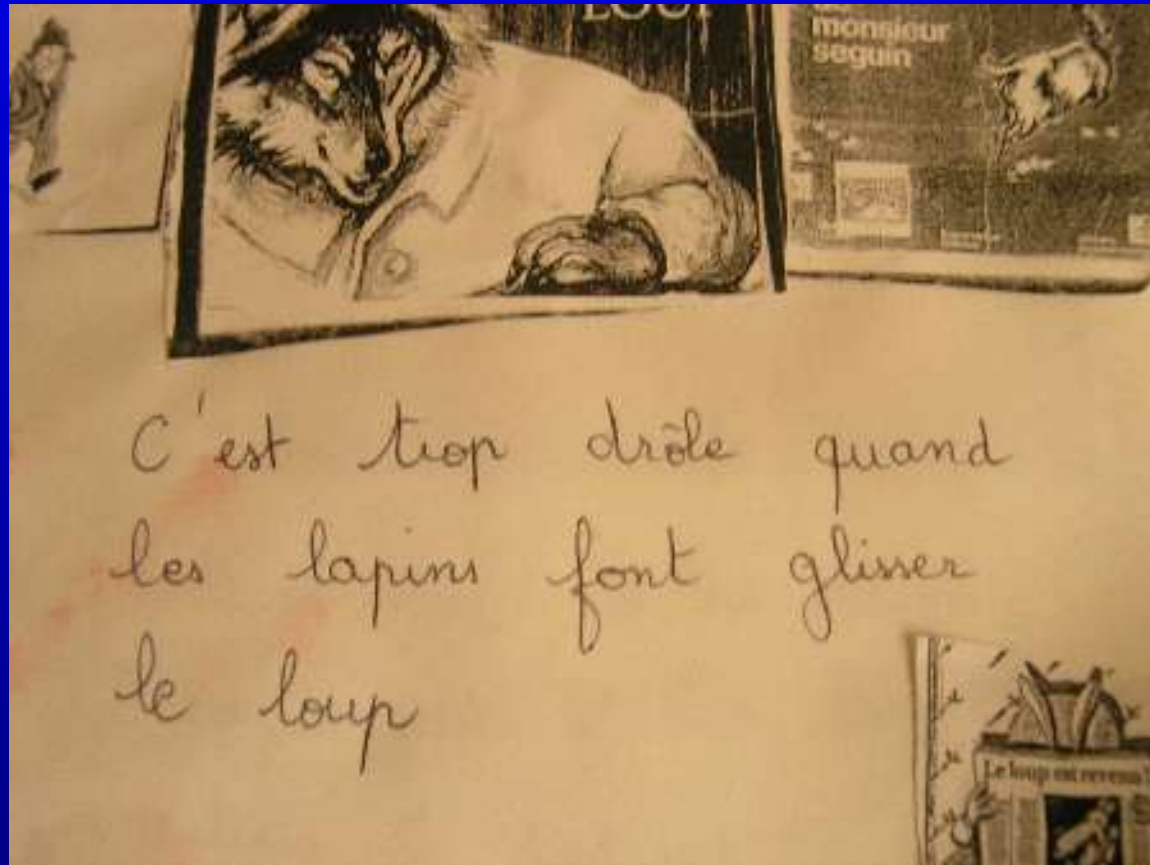 LOUP
monsieur
seguin
C'est trop drôle quand
les lapins font glisser
le loup
Le loup est revenu